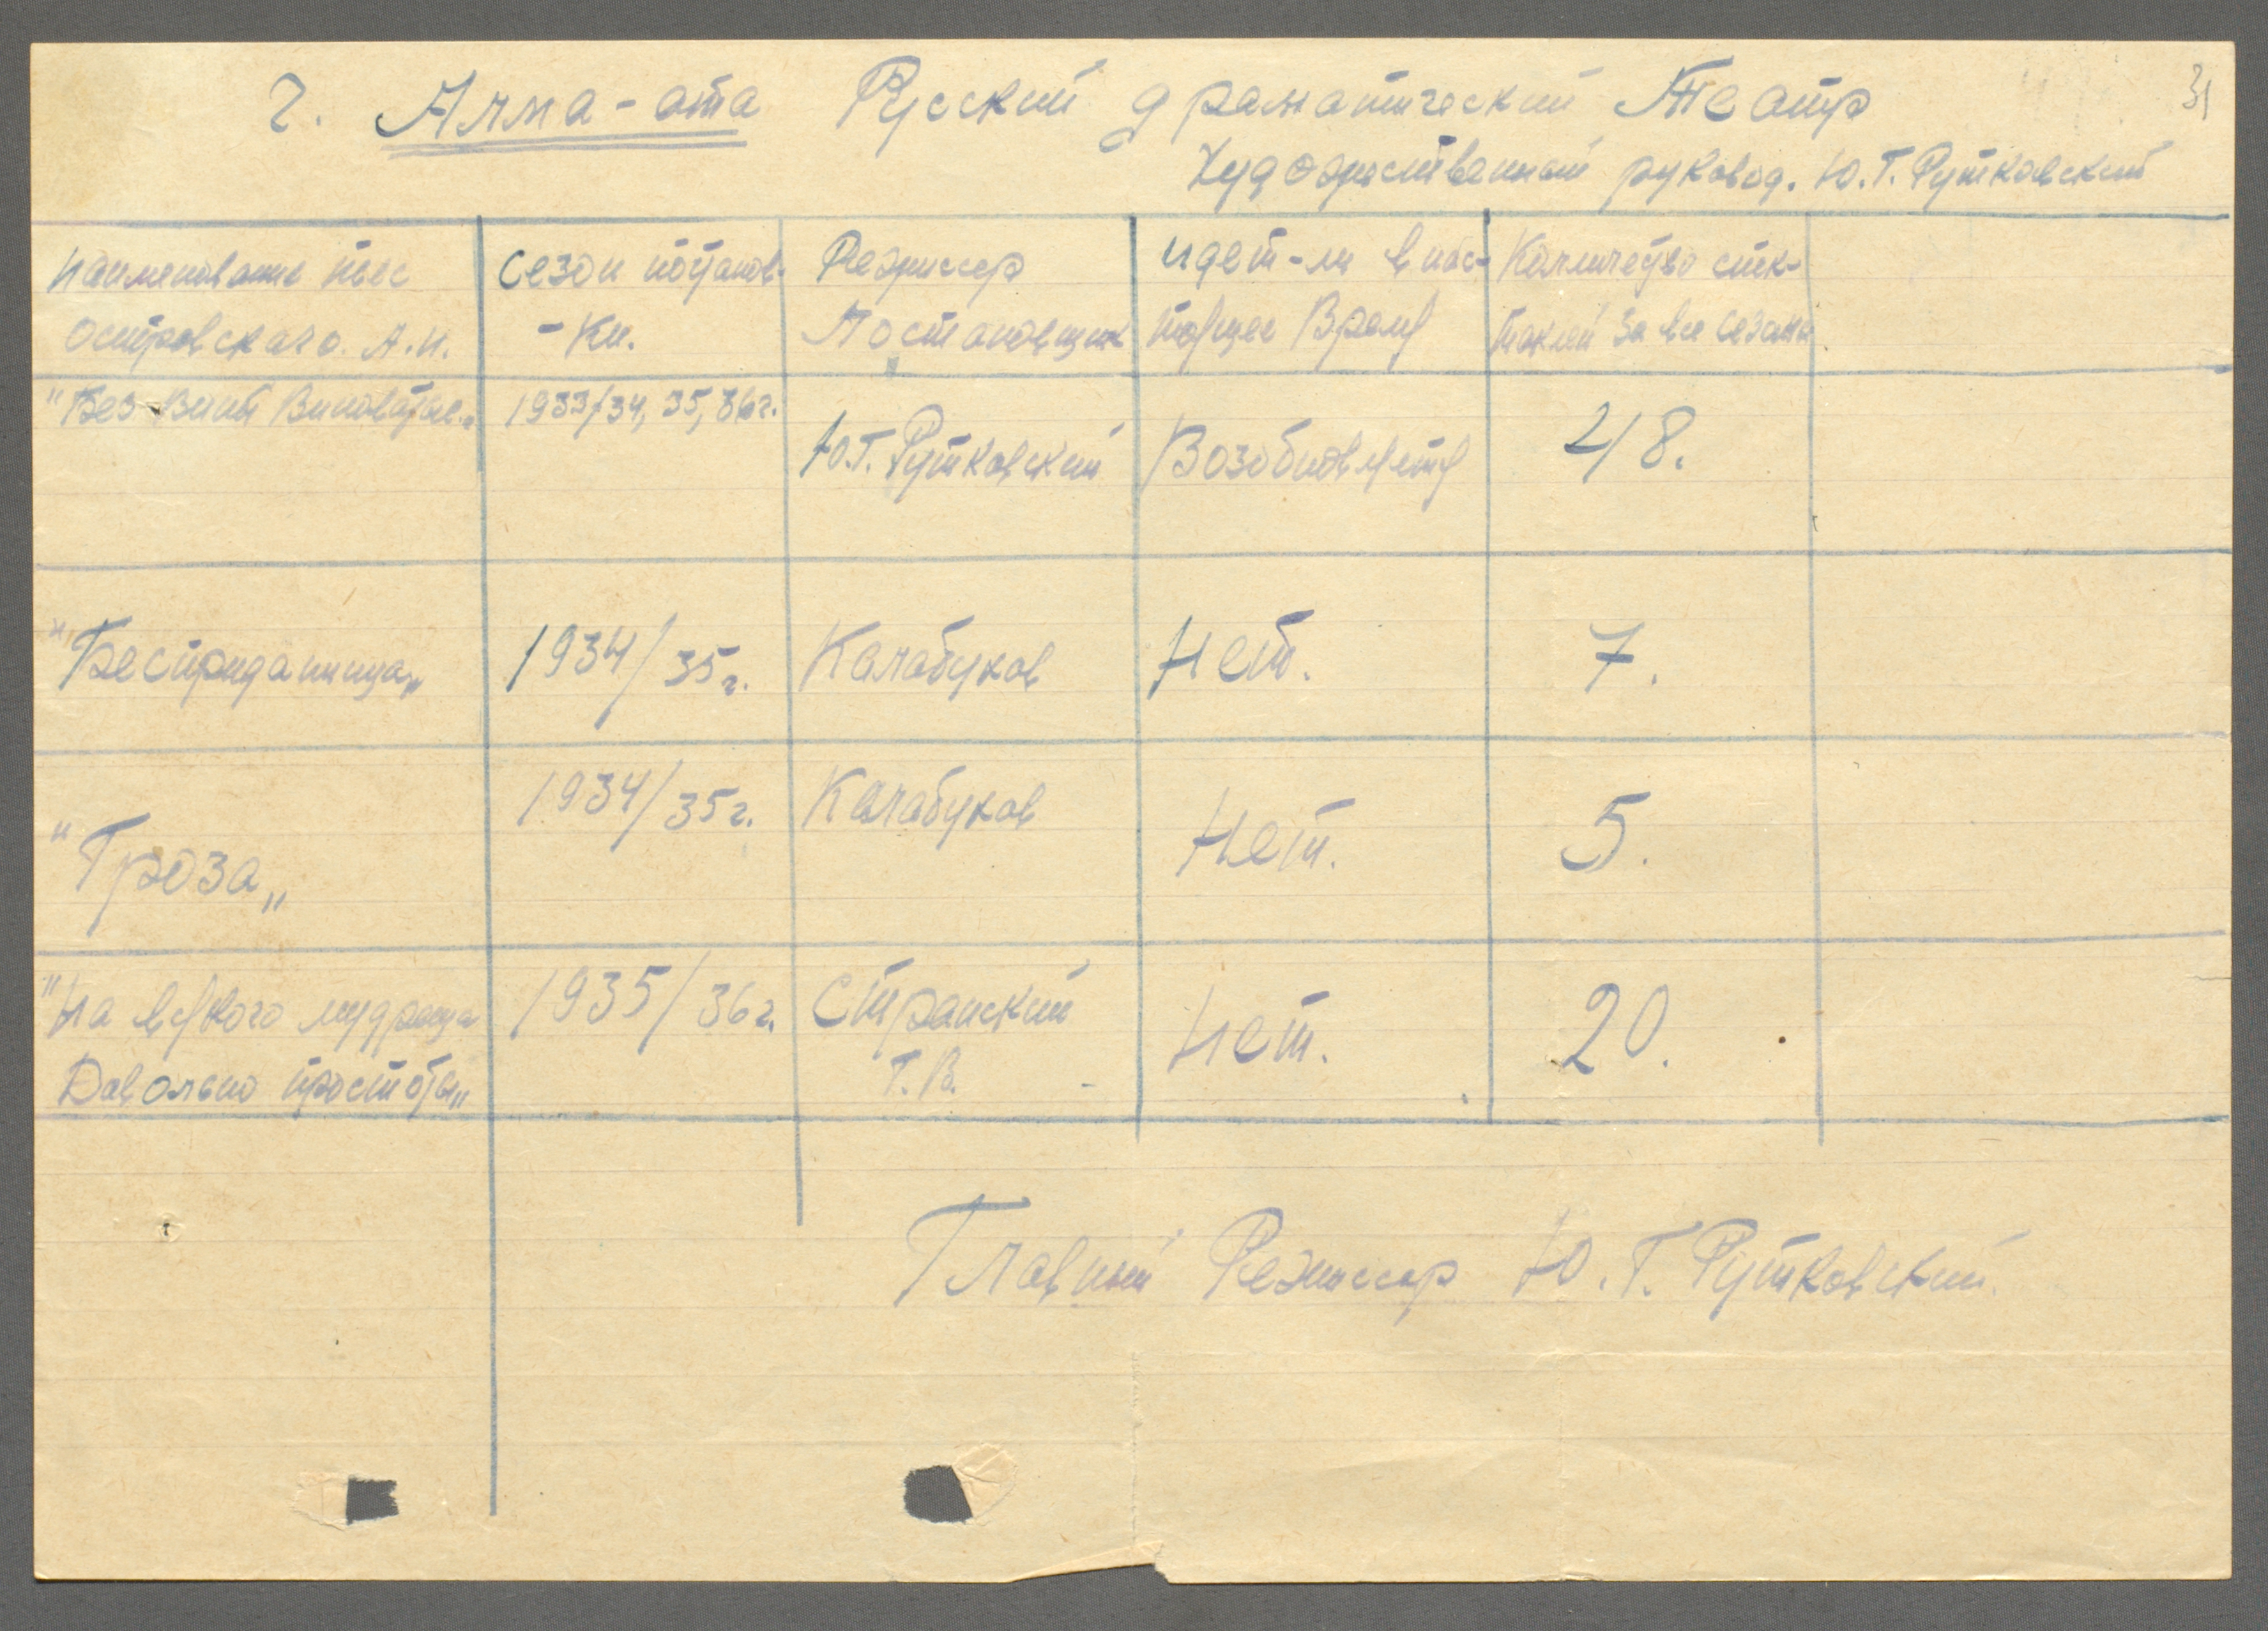 31
г. Алма-ата Русский драматический Театр
Художественный руковод. Ю.Г. Рутковский
Наименование пьес
Островского. А.Н.
Сезон постанов-
-ки.
Режиссер
Постановщик
Идет-ли в нас-
тоящее Время
Количество спек-
таклей за все сезоны
"Без Вины Виноватые"
1933/34, 35, 36г.
Ю.Г. Рутковский
Возобновляется
48.
"Бесприданница"
1934/35г.
Калабухов
Нет.
7.
"Гроза"
1934/35г.
Калабухов
Нет.
5.
"На всякого мудреца
Довольно простоты"
1935/36г.
Странский
Г.В.
Нет.
20.
Главный Режиссер Ю.Г. Рутковский.